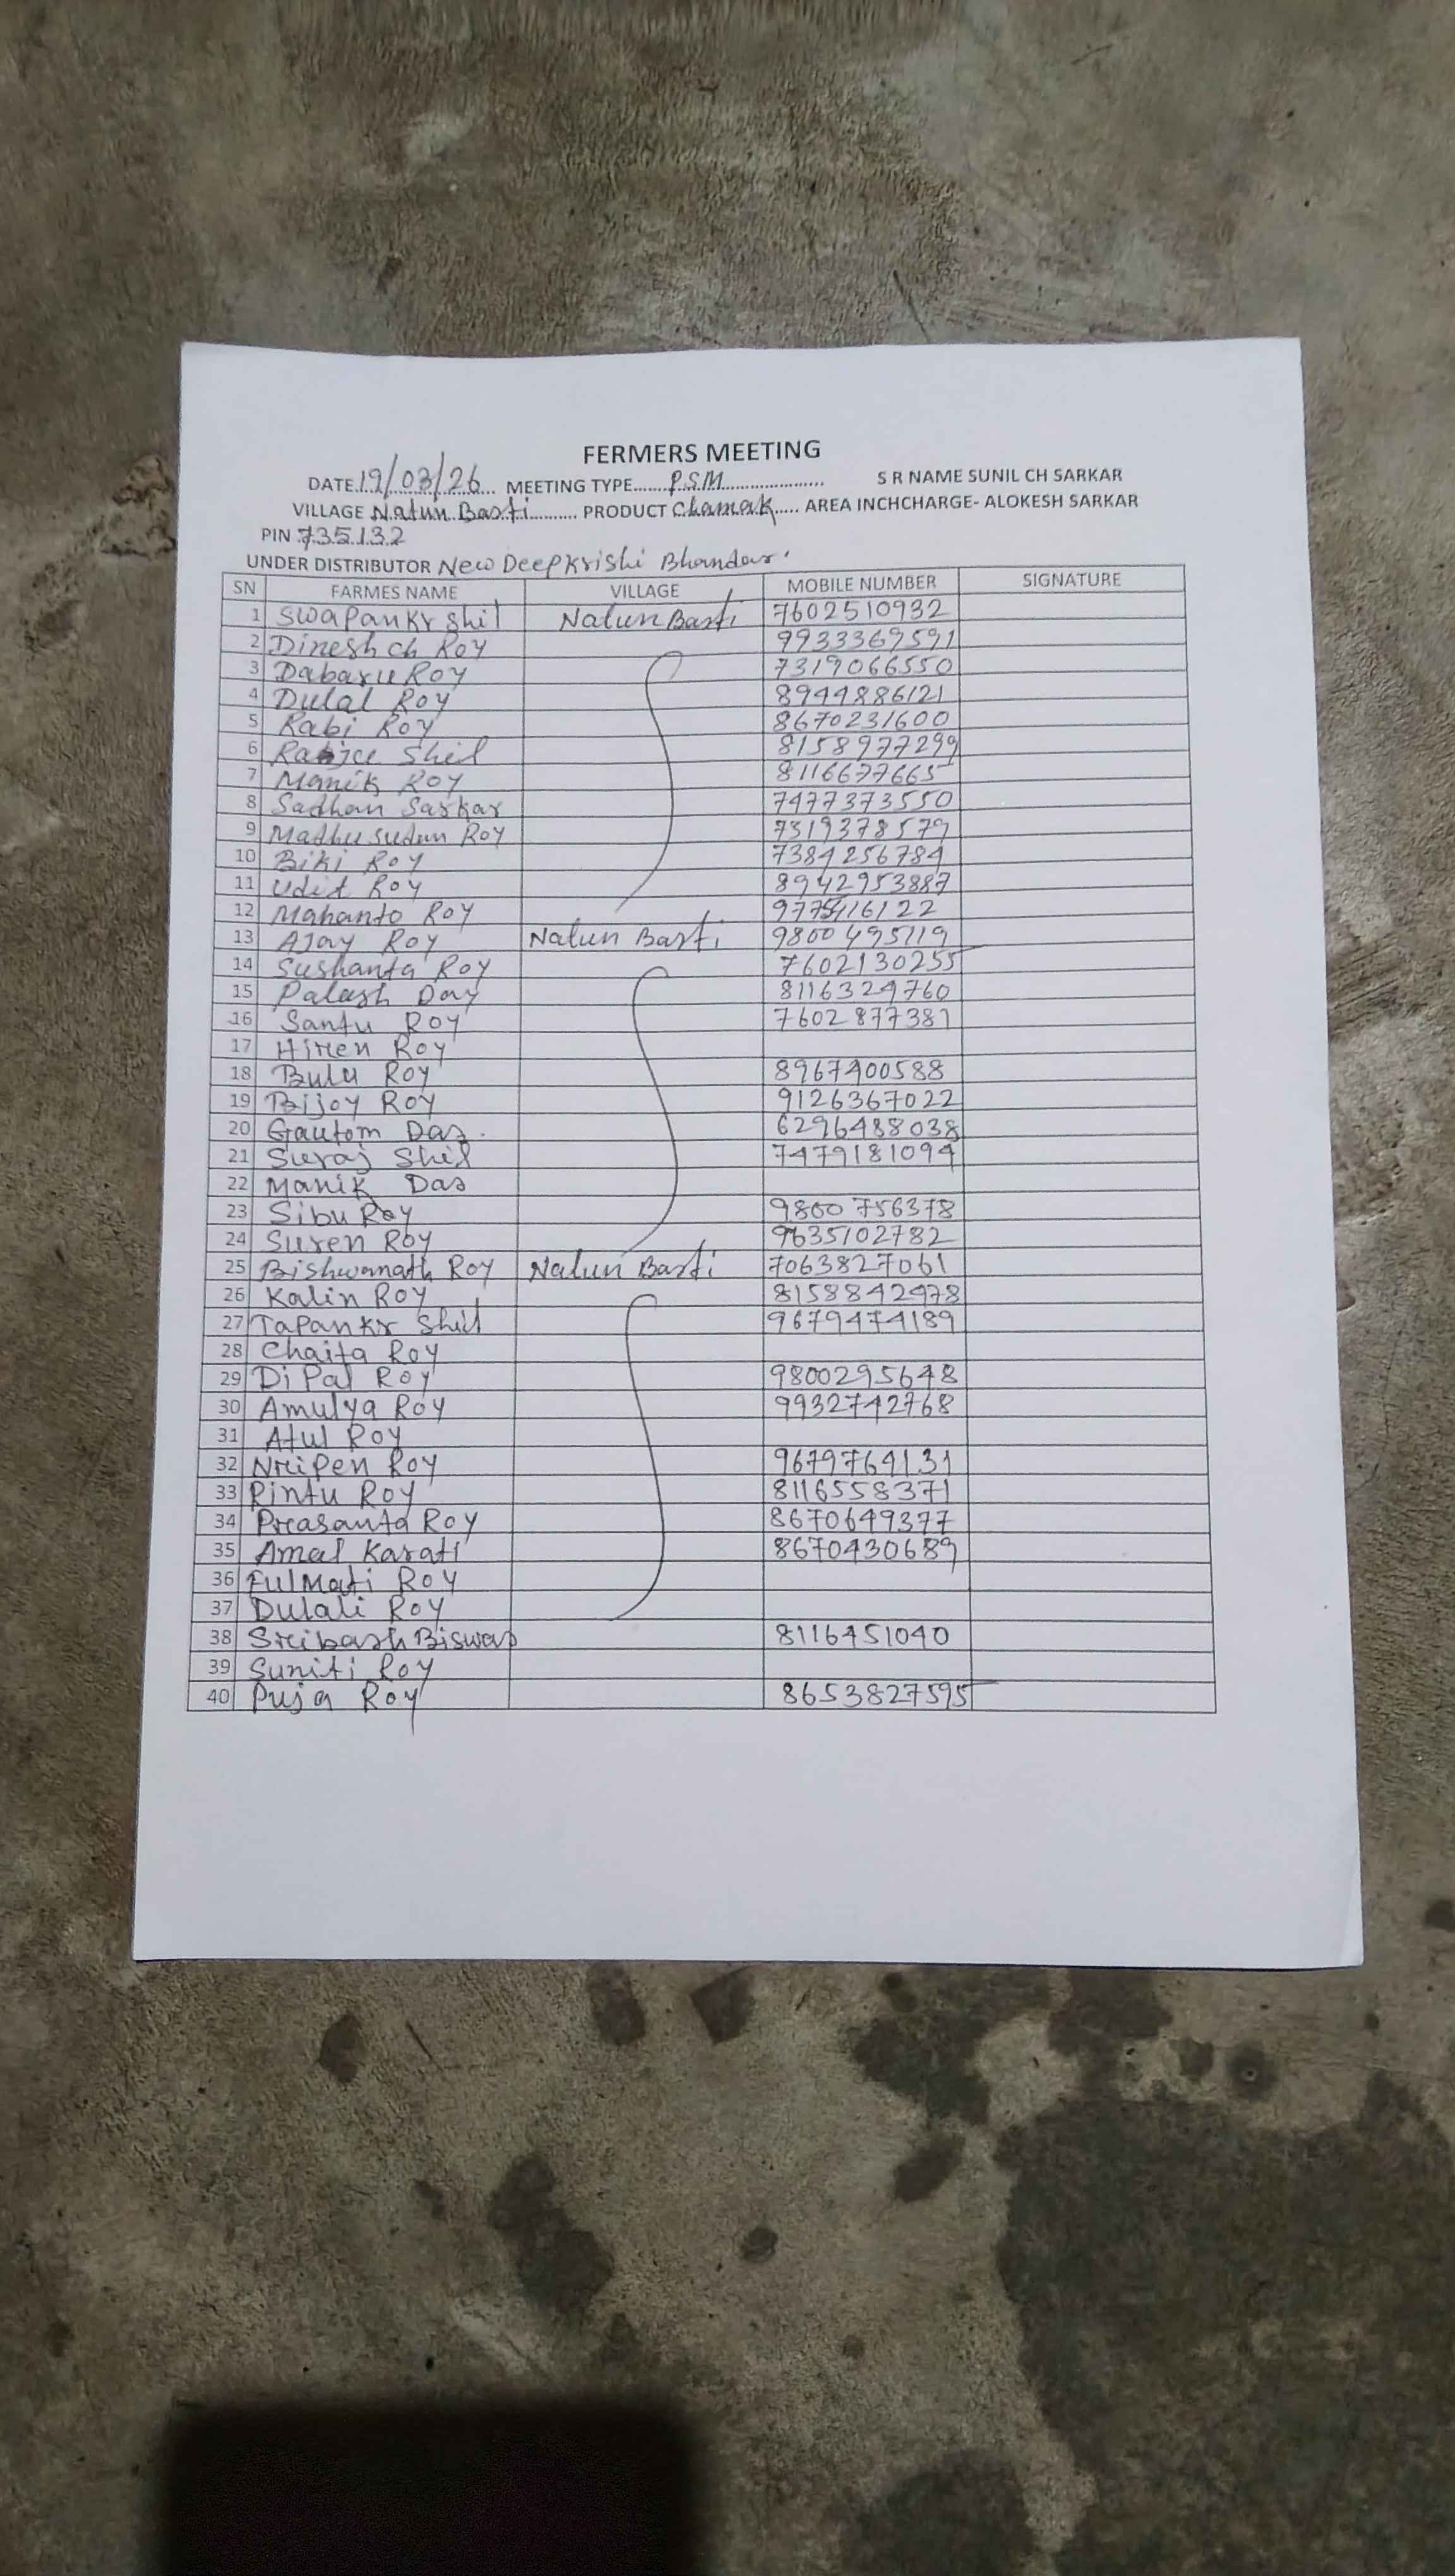 FERMERS MEETING
DATE 19/03/26 MEETING TYPE PSM S R NAME SUNIL CH SARKAR
VILLAGE Natun Basti PRODUCT Chamak AREA INCHCHARGE- ALOKESH SARKAR
PIN 735132
UNDER DISTRIBUTOR New Deep Krishi Bhandar
SN FARMES NAME VILLAGE MOBILE NUMBER SIGNATURE
1 Swapan Kr Shil Natun Basti 7602510932
2 Dinesh ch Roy 9933369591
3 Dabaru Roy 7319066550
4 Dulal Roy 8944886121
5 Rabi Roy 8670231600
6 Shil 8158977299
7 Manik Roy 8116677665
8 Sadhan Sarkar 7477373550
9 Madhusudan Roy 7319378579
10 Biki Roy 7384256784
11 Udit Roy 8942953887
12 Mahanto Roy
13 Ajay Roy Natun Basti 9800495119
14 Sushanta Roy 7602130255
15 Palash Day 8116324760
16 Santu Roy 7602877381
17 Hiren Roy
18 Bulu Roy 8967400588
19 Bijoy Roy 9126367022
20 Gautom Das. 6296488038
21 Suraj Shil 7479181094
22 Manik Das
23 Sibu Roy 9800756378
24 Suren Roy 9635102782
25 Bishwanath Roy Natun Basti 7063827061
26 Kalin Roy 8158842478
27 Tapan Kr Shil 9679474189
28 Chaita Roy
29 Dipal Roy 9800295648
30 Amulya Roy 9932742768
31 Atul Roy
32 Nripen Roy 9679764131
33 Pintu Roy 8116558371
34 Prasanta Roy 8670649377
35 Amal Karati 8670430689
36 Fulmati Roy
37 Dulali Roy
38 Sribash Biswas 8116451040
39 Suniti Roy
40 Puja Roy 8653827595